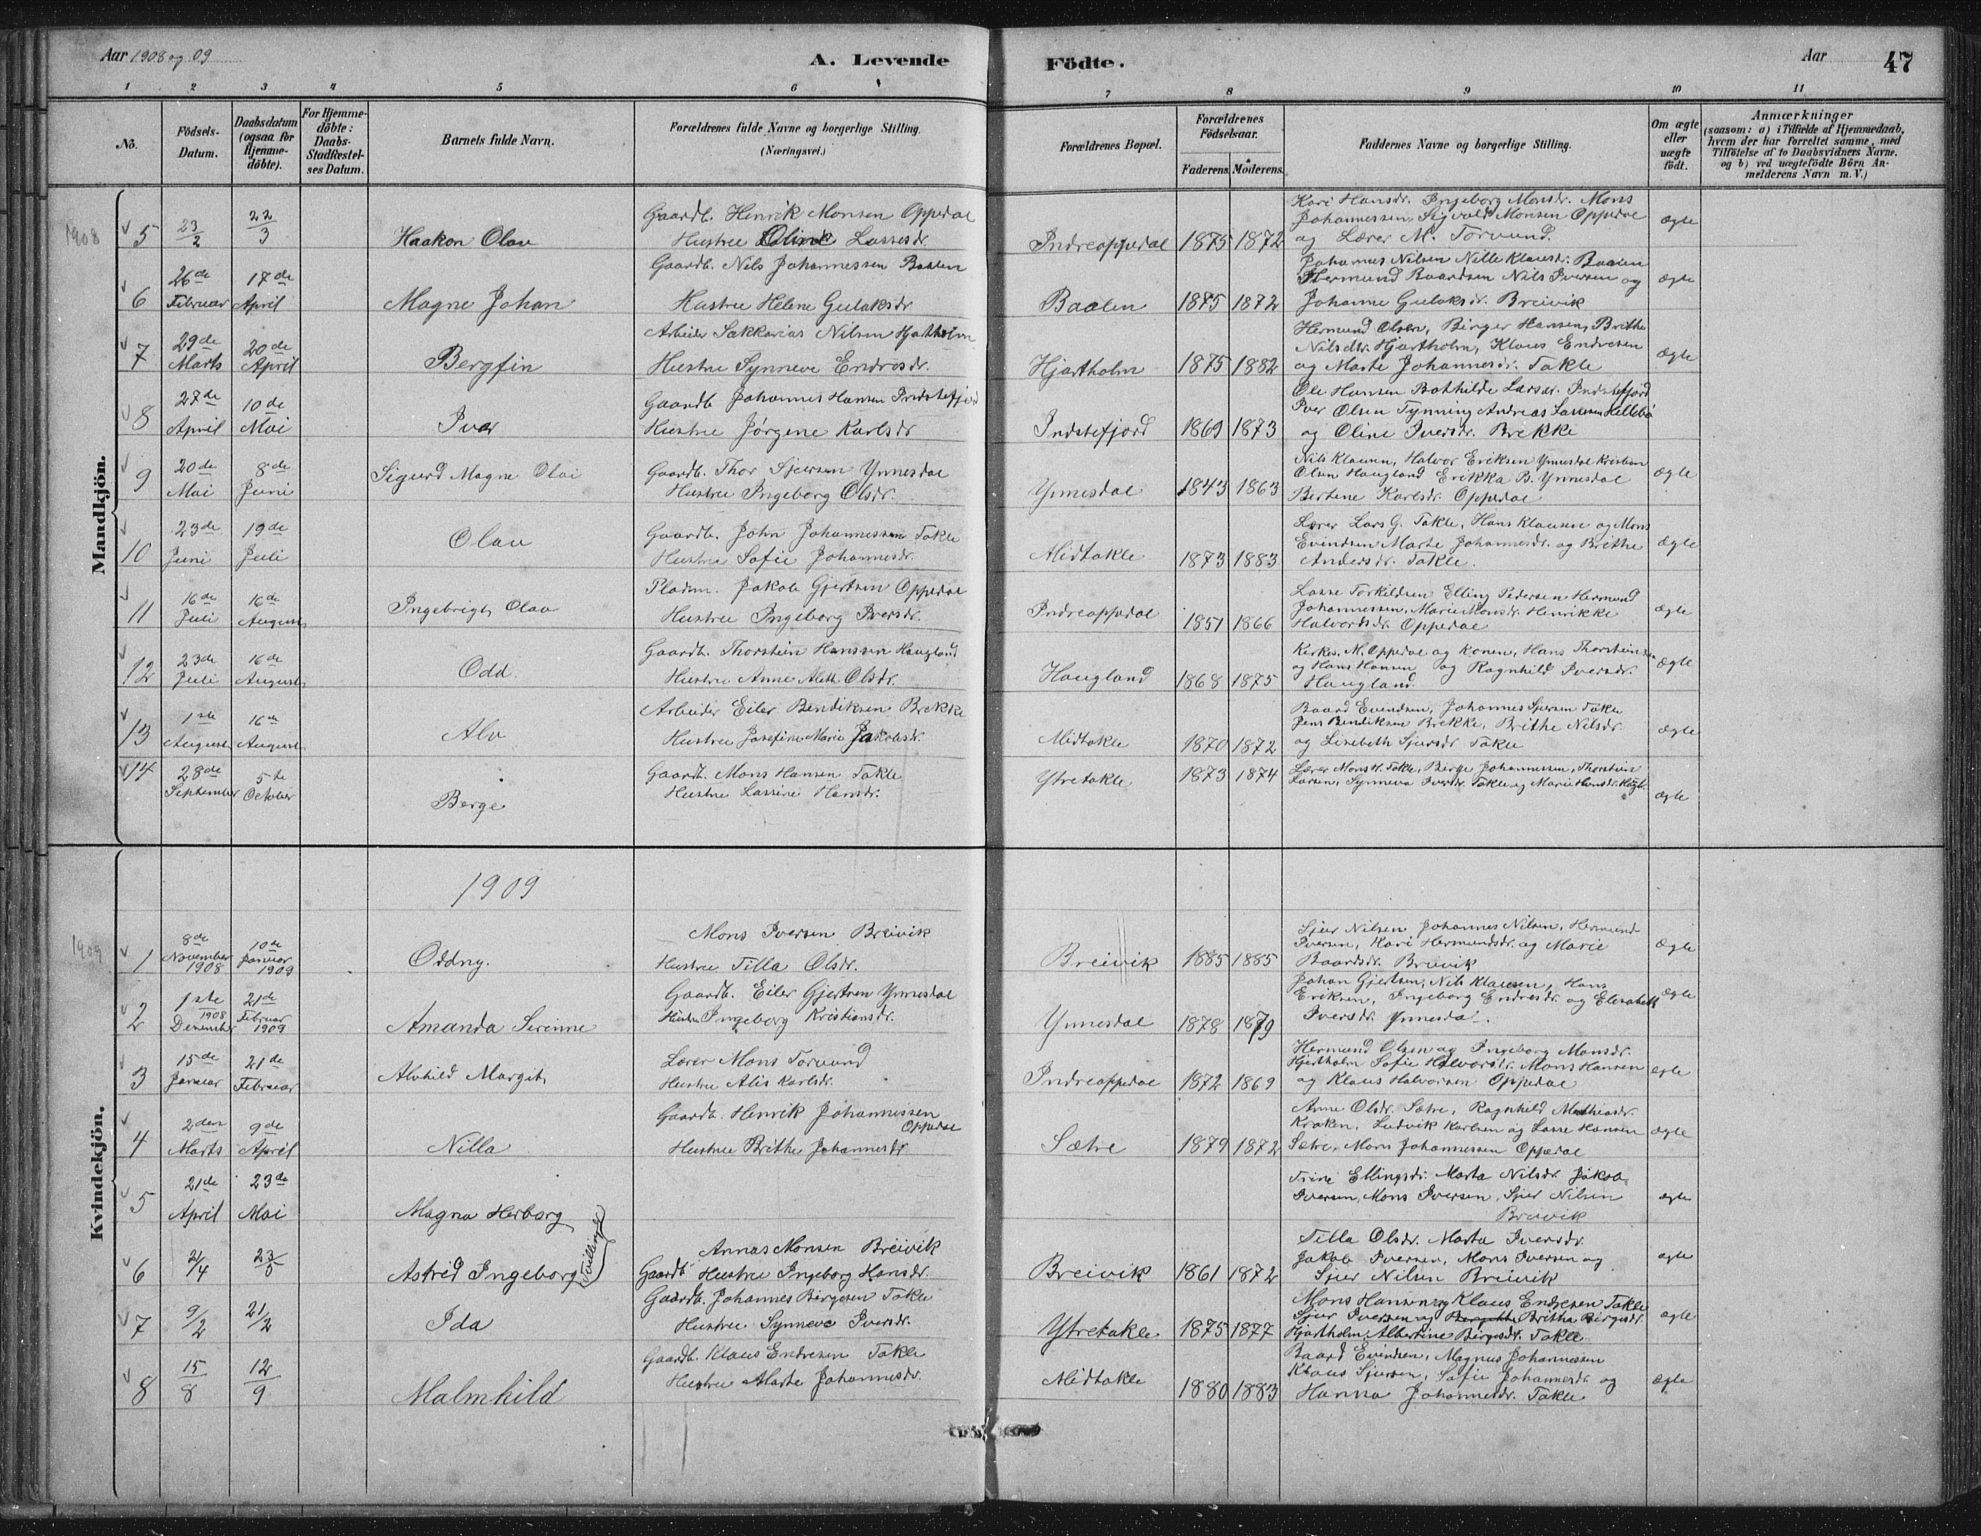 Aar 1908 og 09
A. Levende Födte.
Aar 47
1 2 3 4 5 6 7 8 9 10 11
No.
Födsels-Datum.
Daabsdatum (ogsaa for Hjemme-döbte).
For Hjemme-döbte: Daabs-Stadfæstel-ses Datum.
Barnets fulde Navn.
Forældrenes fulde Navne og borgerlige Stilling.
(Næringsvei.)
Forældrenes Bopæl.
Forældrenes Födselsaar.
Faderens. Moderens.
Faddernes Navne og borgerlige Stilling.
Om ægte eller uægte födt.
Anmærkninger
(saasom: a) i Tilfælde af Hjemmedaab, hvem der har forrettet samme, med Tilföielse af to Daabsvidners Navne, og b) ved uægtefödte Börn An-melderens Navn m. V.)
Mandkjön.
1908
5 23/2 22/3 Haakon Olav
Gaardb. Henrik Monsen Oppedal
Hustru Oline Lassesdr.
Indreoppedal 1875 1872
Kari Hansdr. Ingeborg Monsdr. Mons
Johannessen, Sigvald Monsen Oppedal
og Lærer M. Torvund.
ægte
6 26de Februar 17de April Magne Johan
Gaardb. Nils Johannessen Baalen
Hustru Helene Gulaksdr
Baalen 1875 1872
Johannes Nilsen Nille Klausdr. Baalen
Hermund Baardsen Nils Iversen og
Johanne Gulaksdr. Breivik
ægte
7 29de Marts 20de April Bergfin
Arbeider Sakkarias Nilsen Hjartholm
Hustru Synneve Endresdr.
Hjartholm 1875 1882
Hermund Olsen, Birger Hansen, Brithe
Nilsdtr. Hjartholm, Klaus Endresen
og Marte Johannesdr. Takle
ægte
8 27de April 10de Mai Ivar
Gaardb Johannes Hansen Indstefjord
Hustru Jørgene Karlsdr
Indstefjord 1869 1873
Ole Hansen Bothilde Larsdr. Indstefjord
Iver Olsen Tynning Andreas Lassen Hellebø
og Oline Iversdr. Brekke
ægte
9 20de Mai 8de Juni Sigurd Magne Olai
Gaardb. Thor Sjursen Ynnesdal
Hustru Ingeborg Olsdr.
Ynnesdal 1843 1863
Nils Klausen, Halvor Eriksen Ynnesdal Kristian
Olsen Haugland Erikka B. Ynnesdal
Bertene Karlsdr. Oppedal
ægte
10 23de Juni 19de Juli Olav
Gaardb. John Johannessen Takle
Hustru Sofie Johannesdr.
Midtakle 1873 1883
Lærer Lars G. Takle, Hans Klausen og Mons
Evindsen Marte Johannesdr. og Brithe
Andersdr. Takle.
ægte
11 16de Juli 16de August Ingebrigt Olav
Pladsm. Jakob Gjertsen Oppedal
Hustru Ingeborg Iversdr.
Indreoppedal 1851 1866
Lasse Torkildsen Elling Pedersen Hermund
Johannessen, Marie Monsdr. Henrikke
Halvorsdr. Oppedal
ægte
12 23de Juli 16de August Odd.
Gaardb. Thorstein Hanssen Haugland
Hustru Anne Aleth Olsdr.
Haugland 1868 1875
Kirkes. M. Oppedal og konen, Hans Thorsteinsen
og Hans Hansen og Ragnhild Iversdr.
Haugland.
ægte
13 1ste August 16de August Alv
Arbeider Eiler Bendiksen Brekke
Hustru Josefine Marie Jakobsdr.
Midtakle 1870 1872
Baard Evindsen, Johannes Sjursen Takle
Jens Bendiksen Brekke, Brithe Nilsdr.
og Lisebeth Sjursdr. Takle
ægte
14 28de September 5te October Berge
Gaardb. Mons Hansen Takle
Hustru Lassine Hansdr.
Ytretakle 1873 1874
Lærer Mons H. Takle, Berge Johannessen, Thorstein
Larsen, Synneva Iversdr. Takle og Marie Hansdr.
ægte
Kvindekjön.
1909
1909
1 8de November 1908 10de Januar 1909 Oddny.
Mons Iversen Breivik
Hustru Tilla Olsdr.
Breivik 1885 1885
Sjur Nilsen Johannes Nilsen, Hermund
Iversen, Kari Hermundsdr. og Marie
Baardsdr. Breivik
ægte
2 1ste December 1908 21de Februar 1909 Amanda Sirinne
Gaardb. Eiler Gjertsen Ynnesdal
Hustru Ingeborg Kristiansdr.
Ynnesdal 1878 1879
Johan Gjertsen, Nils Klausen, Hans
Eriksen, Ingeborg Endresdr. og Elisabeth
Iversdr. Ynnesdal.
ægte
3 15de Januar 21de Februar Alvhild Margit
Lærer Mons Torvund
Hustru Alis Karlsdr.
Indreoppedal 1872 1869
Hermund Olsen og Ingeborg Monsdr.
Hjertholm Sofie Halvorsdr. Mons Hansen
og Klaus Halvorsen Oppedal
ægte
4 2den Marts 9de April Nilla
Gaardb. Henrik Johannessen Oppedal
Hustru Brithe Johannesdr
Sætre 1879 1872
Anne Olsdr. Sætre, Ragnhild Mathiasdr.
Kraken, Ludvik Karlsen og Lasse Hansen
Sætre, Mons Johannessen Oppedal
ægte
5 21de April 23de Mai Magna Herborg
Trine Ellingsdr. Marta Nilsdr. Jakob
Iversen, Mons Iversen, Sjur Nilsen
Breivik
ægte
6 21/4 23/5 Astrid Ingeborg (Tvillinge)
Annas Monsen Breivik
Gaardb Hustru Ingeborg Hansdr.
Breivik 1861 1872
Tilla Olsdr. Marta Iversdr
Jakob Iversen, Mons Iversen og
Sjur Nilsen Breivik
ægte
7 9/2 21/2 Ida
Gaardb. Johannes Birgesen Takle
Hustru Synneve Iversdr.
Ytretakle 1875 1877
Mons Hansen og Klaus Endresen Takle
Sjur Iversen og Britha Birgesdr.
Hjartholm, Albertine Birgesdr. Takle
ægte
8 15/8 12/9 Malmhild
Gaardb. Klaus Endresen Takle
Hustru Marte Johannesdr.
Midtakle 1880 1883
Baard Evindsen, Magnus Johannessen
Klaus Sjursen, Sofie Johannesdr. og
Hanna Johannesdr. Takle
ægte